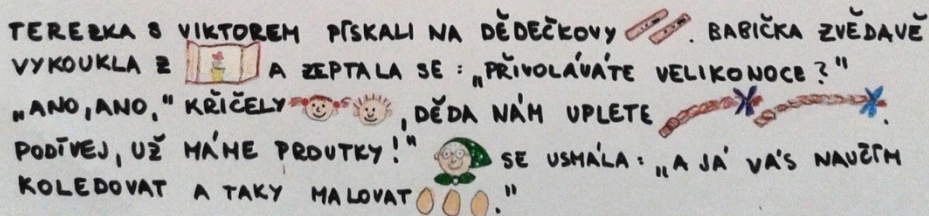 TEREZKA S VIKTOREM PÍSKALI NA DĚDEČKOVY . BABIČKA ZVĚDAVĚ
VYKOUKLA Z A ZEPTALA SE : „PŘIVOLÁVÁTE VELIKONOCE ?"
„ANO, ANO," KŘIČELY , DĚDA NÁM UPLETE .
PODÍVEJ, UŽ MÁME PROUTKY !" SE USMÁLA : „A JÁ VÁS NAUČÍM
KOLEDOVAT A TAKY MALOVAT ."